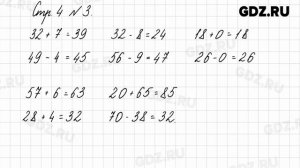 GDZ.RU
Стр. 4 №3.
32 + 7 = 39 32 - 8 = 24 18 + 0 = 18
49 - 4 = 45 56 - 9 = 47 26 - 0 = 26
57 + 6 = 63 20 + 65 = 85
28 + 4 = 32 70 - 38 = 32
GDZ.RU